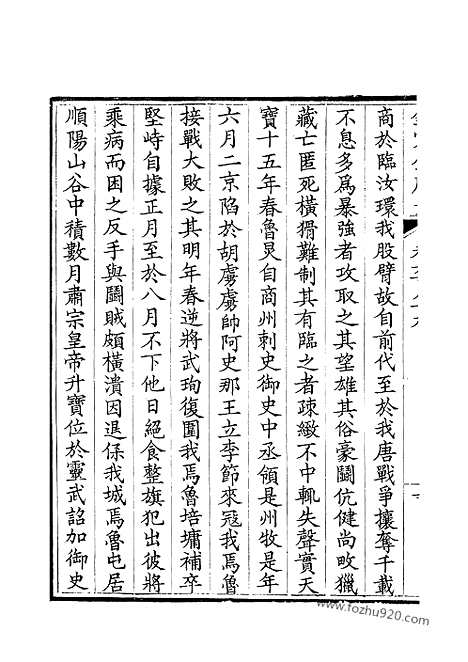 商於臨汝環我股臂故自前代至於我唐戰爭攘奪千載
不息多爲暴強者攻取之其望雄其俗豪鬬伉健尚畋獵
藏亡匿死橫猾難制其有臨之者疎緻不中輒失聲實天
寶十五年春魯炅自商州刺史御史中丞領是州牧是年
六月二京陷於胡虜虜帥阿史那王立李節來冦我焉魯
接戰大敗之其明年春逆將武珣復圍我焉魯培墉補卒
堅峙自據正月至於八月不下他日絕食整旗犯出彼將
乘病而因之反手與鬬賊頗橫潰因退保我城焉魯屯居
順陽山谷中積數月肅宗皇帝升寶位於靈武詔加御史
www.fozhu920.com